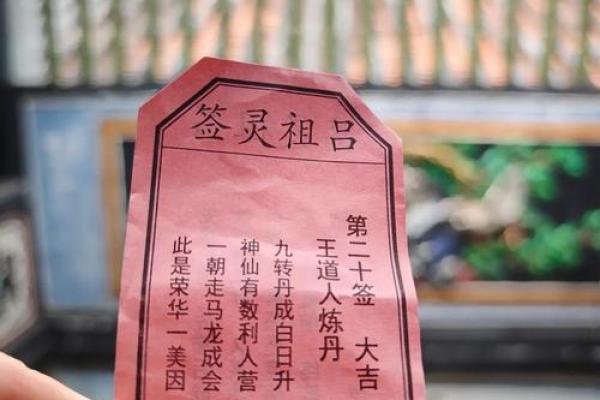 吕祖灵签
第二十签 大吉
王道人炼丹
九转丹成白日升
神仙有数利人营
一朝走马龙成会
此是荣华一美因